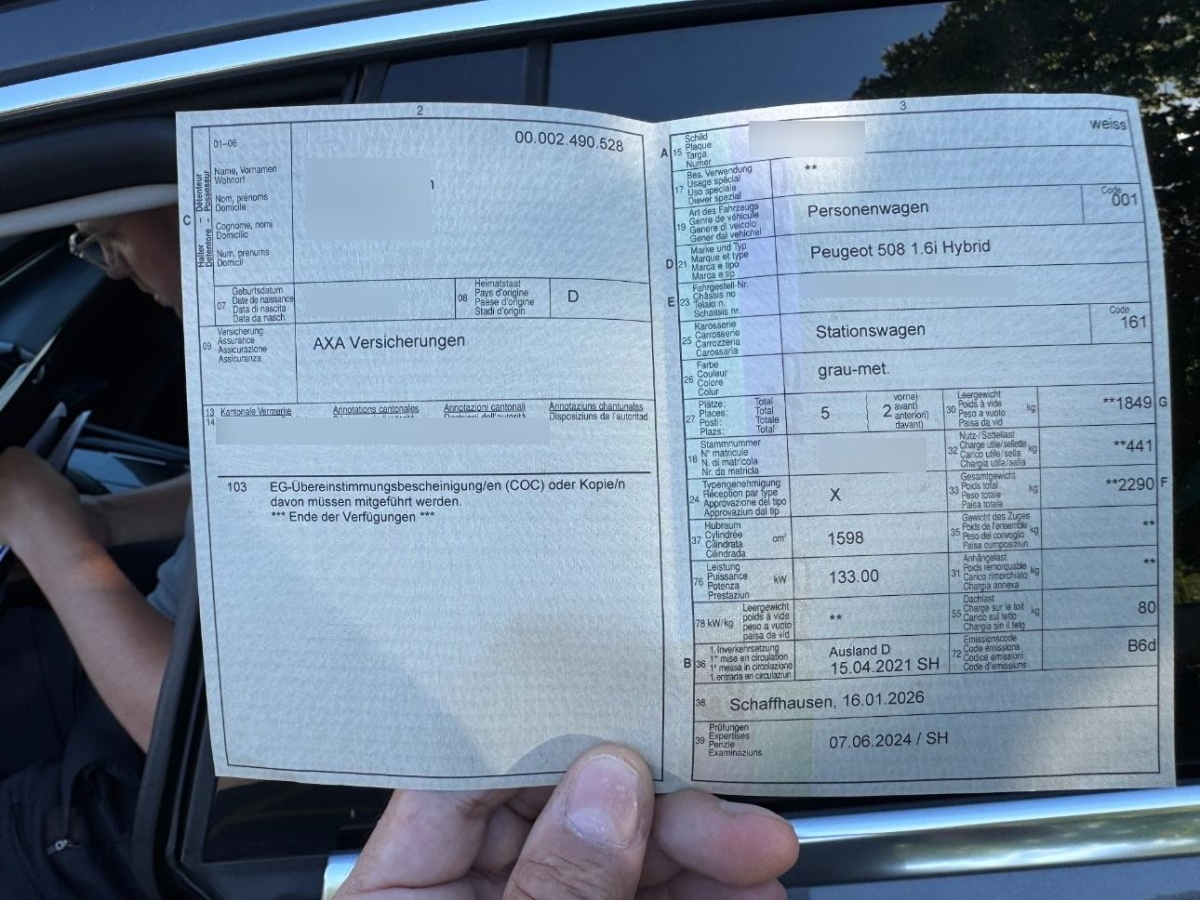 2
01-06
00.002.490.528
C
Halter – Détenteur
Detentore – Possessur
Name, Vornamen
Wohnort
Nom, prénoms
Domicile
Cognome, nomi
Domicilio
Num, prenums
Domicil
07
Geburtsdatum
Date de naissance
Data di nascita
Data da nasch.
08
Heimatstaat
Pays d'origine
Paese d'origine
Stadi d'origin
D
09
Versicherung
Assurance
Assicurazione
Assicuranza
AXA Versicherungen
13 Kantonale Vermerke
Annotations cantonales
Annotazioni cantonali
Annotaziuns chantunalas
14
Disposiziuns da l'autoritad
103 EG-Übereinstimmungsbescheinigung/en (COC) oder Kopie/n
davon müssen mitgeführt werden.
*** Ende der Verfügungen ***
3
A 15
Schild
Plaque
Targa
Numer
weiss
17
Bes. Verwendung
Usage spécial
Uso speciale
Diever spezial
**
19
Art des Fahrzeugs
Genre de véhicule
Genere di veicolo
Gener dal vehichel
Personenwagen
Code
001
D 21
Marke und Typ
Marque et type
Marca e tipo
Marca e tip
Peugeot 508 1.6i Hybrid
E 23
Fahrgestell-Nr.
Châssis no
Telaio n.
Schassis nr.
25
Karosserie
Carrosserie
Carrozzeria
Carossaria
Stationswagen
Code
161
26
Farbe
Couleur
Colore
Colur
grau-met.
27
Plätze: Total
Places: Total
Posti: Totale
Plazs: Total
5
2
vorne)
avant)
anteriori)
davant)
30
Leergewicht
Poids à vide
Peso a vuoto
Paisa da vid
kg
**1849 G
18
Stammnummer
N° matricule
N. di matricola
Nr. da matricla
32
Nutz-/Sattellast
Charge utile/sellette
Carico utile/sella
Chargia utila/sella
kg
**441
24
Typengenehmigung
Réception par type
Approvazione del tipo
Approvaziun dal tip
X
33
Gesamtgewicht
Poids total
Peso totale
Paisa totala
kg
**2290 F
37
Hubraum
Cylindrée
Cilindrata
Cilindrada
cm³
1598
35
Gewicht des Zuges
Poids de l'ensemble
Peso del convoglio
Paisa cumposiziun
kg
**
76
Leistung
Puissance
Potenza
Prestaziun
kW
133.00
31
Anhängelast
Poids remorquable
Carico rimorchiato
Chargia annexa
kg
**
78 kW/kg
Leergewicht
poids à vide
peso a vuoto
paisa da vid
**
55
Dachlast
Charge sur le toit
Carico sul tetto
Chargia sin il tetg
kg
80
B 36
1. Inverkehrsetzung
1re mise en circulation
1a messa in circolazione
1. entrada en circulaziun
Ausland D
15.04.2021 SH
72
Emissionscode
Code émissions
Codice emissioni
Code d'emissiuns
B6d
38
Schaffhausen, 16.01.2026
39
Prüfungen
Expertises
Perizie
Examinaziuns
07.06.2024 / SH